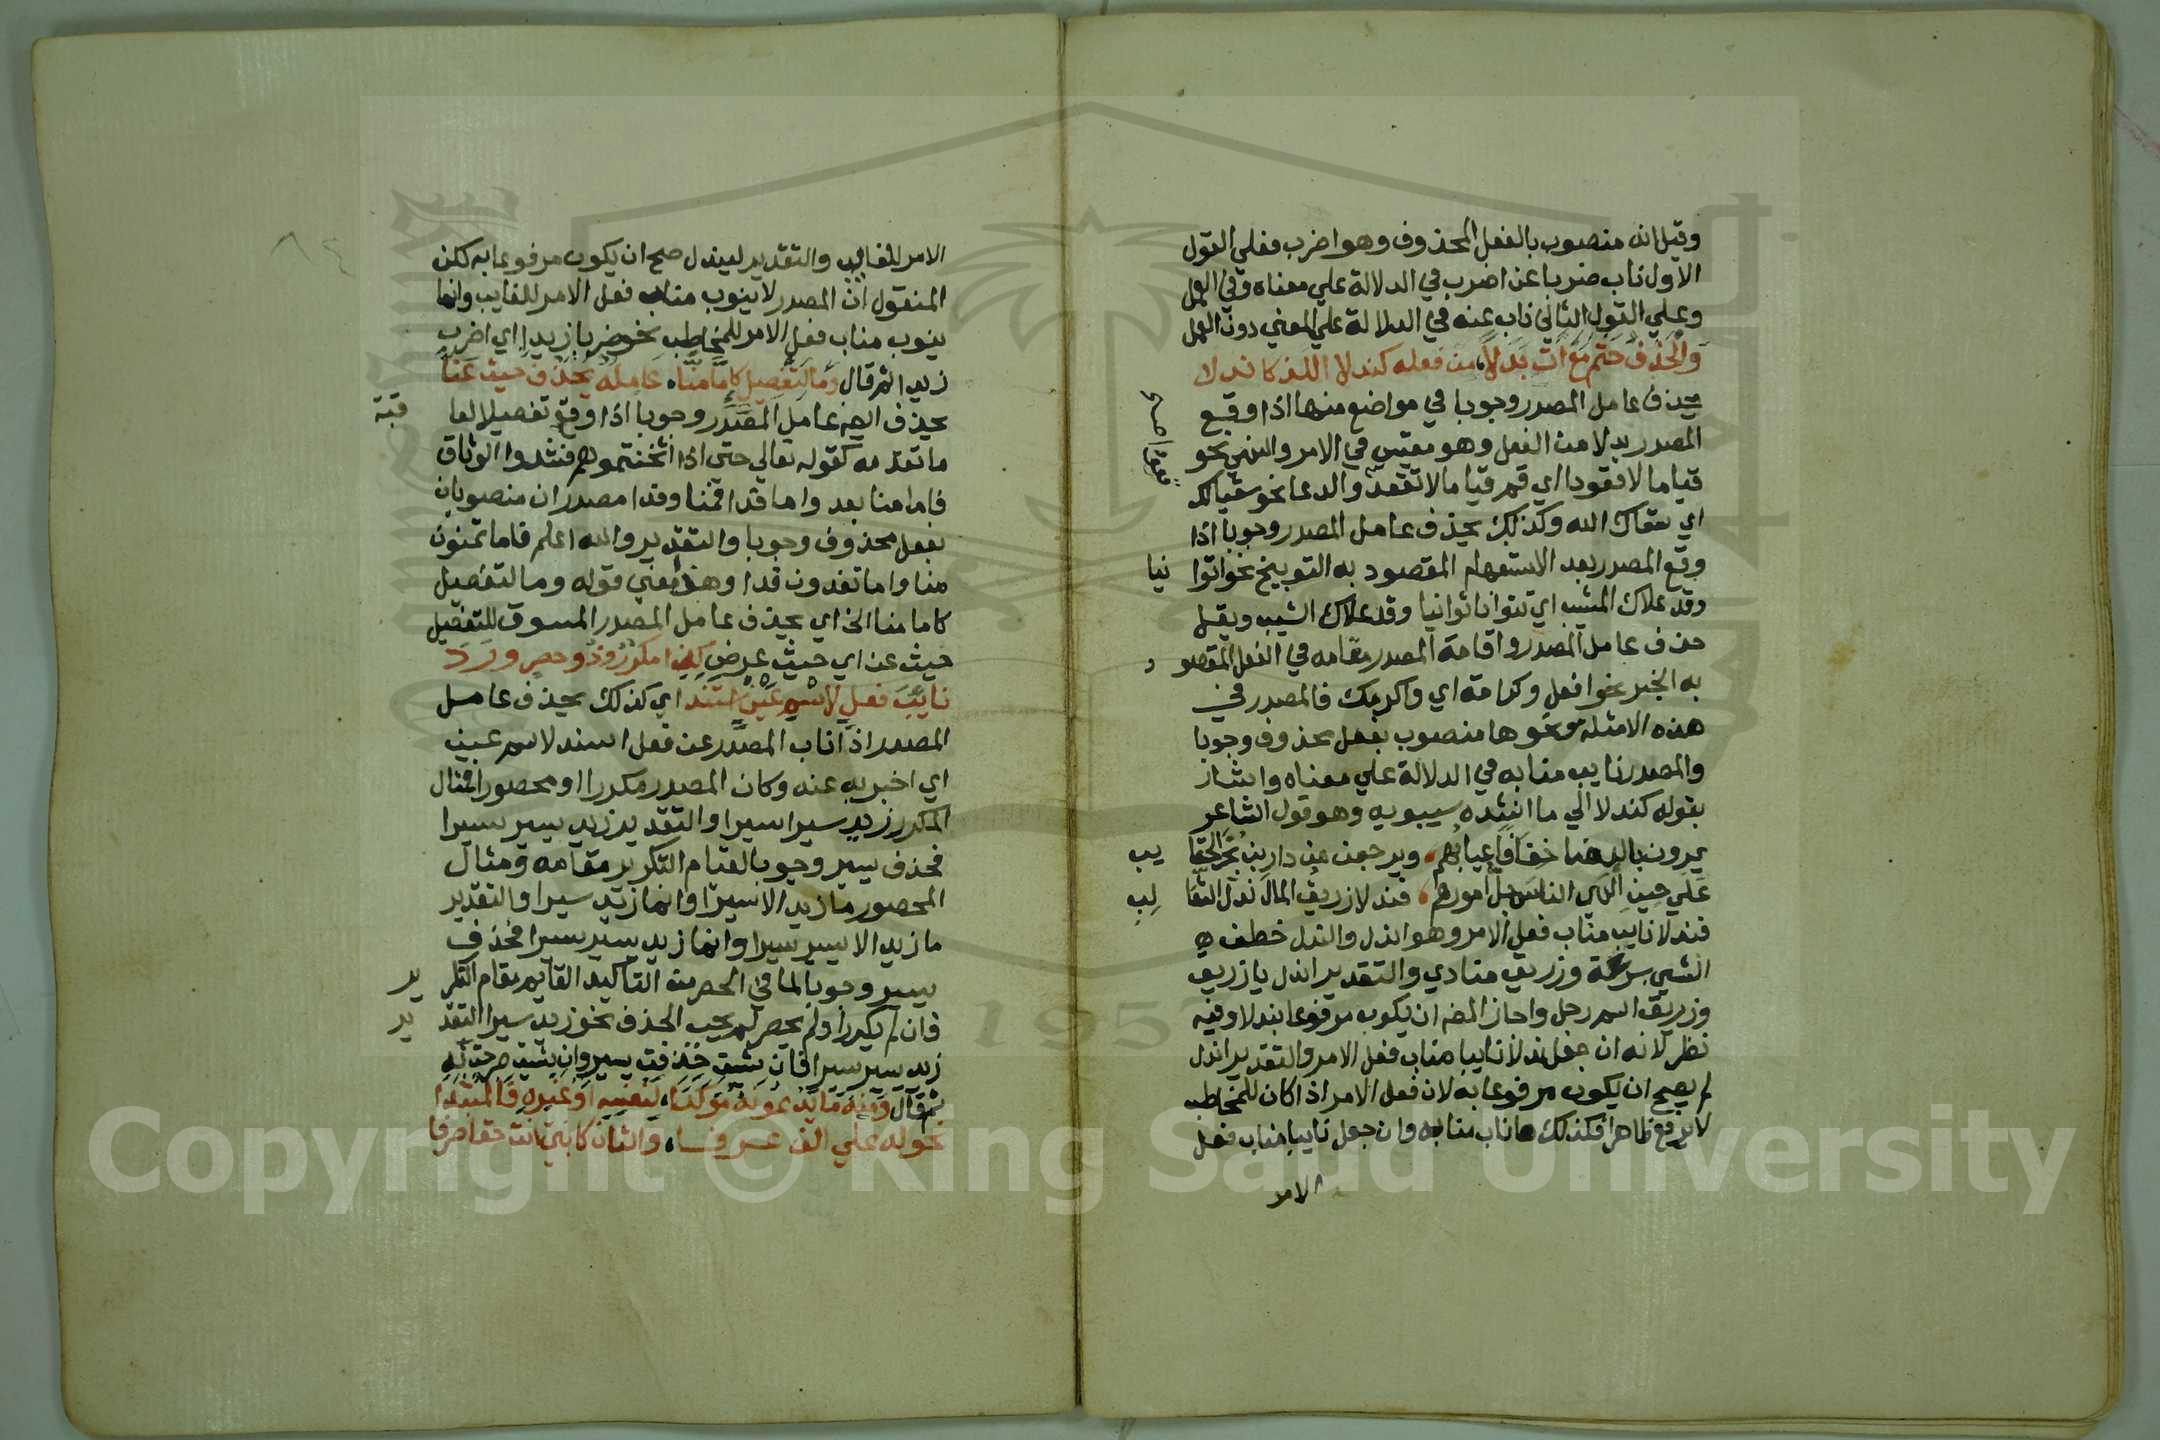 وقيل انه منصوب بالفعل المحذوف وهو اضرب فعلي القول
الاول ناب ضربا عن اضرب في الدلالة علي معناه وفي العمل
وعلي القول الثاني ناب عنه في الدلالة علي المعني دون العمل
وَالْحَذفُ حَتمٌ مَعَ آتٍ بَدَلاً، من فعله كندلا اللذ كاندلا
يحذف عامل المصدر وجوبا في مواضع منها اذا وقع
المصدر بدلا من الفعل وهو مقيس في الامر والنهي نحو
قياما لا قعودا اي قم قياما لا تقعد والدعا نحو سقيا لك
اي سقاك الله وكذلك يحذف عامل المصدر وجوبا اذا
وقع المصدر بعد الاستفهام المقصود به التوبيخ نحو اتوا نيا
وقد علاك المشيب اي تتوانا توانيا وقد علاك الشيب ويقل
حذف عامل المصدر واقامة المصدر مقامه في الفعل المقصو د
به الخبر نحو افعل وكرامة اي واكرمك فالمصدر في
هذه الامثله ونحوها منصوب بفعل محذوف وجوبا
والمصدر نايب منابه في الدلالة علي معناه واشار
بقوله كندلا الي ما انشده سيبويه وهو قول الشاعر
يمرون بالدهنا خفافا عيابُهم، ويرجعن من دارين بُجْرَ الحقا يب
عَلَي حين ألهَي الناسَ جلُّ امورهم، فندلا زريقُ المالَ ندلَ الثعا لب
فندلا نايب مناب فعل الامر وهو اندل والندل خطف
الشي بسرعة وزريق منادي والتقدير اندل يا زريق
وزريق اسم رجل واجاز المص ان يكون مرفوعا بندلا وفيه
نظر لانه ان جعل ندلا نايبا مناب فعل الامر والتقدير اندل
لم يصح ان يكون مرفوعا به لان فعل الامر اذا كان للمخاطب
لا يرفع ظاهرا فكذلك ما ناب منابه وان جعل نايبا مناب فعل
الامر
الامر للغايب والتقدير ليندل صح ان يكون مرفوعا به لكن
المنقول انّ المصدر لا ينوب مناب فعل الامر للغايب وانما
ينوب مناب فعل الامر للمخاطب نحو ضربا زيدا اي اضرب
زيدا ثم قال وَمَا لِتَفصِيلٍ كَإِمَّا مَنَّا، عَامِلُهُ يُحْذَفُ حيثُ عَنَّا
يحذف ايضا عامل المصدر وجوبا اذا وقع تفصيلا لعا قبة
ما تقدمه كقوله تعالي حتي اذا اثخنتموهم فشدوا الوثاق
فاما منا بعد واما فدا فمنا وفدا مصدران منصوبان
بفعل محذوف وجوبا والتقدير والله اعلم فاما تمنون
منا واما تفدون فدا وهذا معني قوله وما لتفصيل
كاما منا الخ اي يحذف عامل المصدر المسوق للتفصيل
حيث عن اي حيث عرض كذا مكرَّرٌ وذُو حصرٍ ورَد
نايبَ فعلٍ لاسمِ عَيْنٍ استند اي كذلك يحذف عامل
المصدر اذا ناب المصدر عن فعل اسند لاسم عين
اي اخبر به عنه وكان المصدر مكررا او محصورا فمثال
المكرر زيد سيرا سيرا والتقدير زيد يسير سيرا
فحذف يسير وجوبا لقيام التكرير مقامه ومثال
المحصور ما زيد الا سيرا وانما زيد سيرا والتقدير
ما زيد الا يسير سيرا وانما زيد يسير سيرا فحذف
يسير وجوبا لما في الحصر من التاكيد القايم مقام التكر ير
فان لم يكرر او لم يحصر لم يجب الحذف نحو زيد سيرا التقد ير
زيد يسير سيرا فان شيت حذفت يسير وان شيت صرحت به
ثم قال ومِنه مَا يَدعُونَهُ مُوَكِّدَا، لِنفسِهِ اَو غَيرِهِ فَالمُبتَدَا
نحو له علي الف عرفا، والثان كابني انت حقا صرفا
Copyright © King Saud University
195